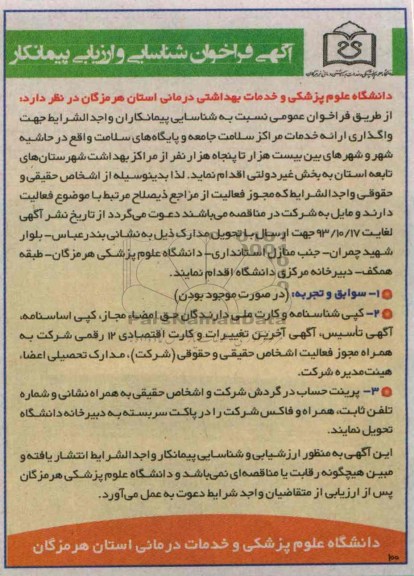 آگهی فراخوان شناسایی و ارزیابی پیمانکار
دانشگاه علوم پزشکی و خدمات بهداشتی درمانی استان هرمزگان در نظر دارد:
از طریق فراخوان عمومی نسبت به شناسایی پیمانکاران واجدالشرایط جهت
واگذاری ارائه خدمات مراکز سلامت جامعه و پایگاه‌های سلامت واقع در حاشیه
شهر و شهرهای بین بیست هزار تا پنجاه هزار نفر از مراکز بهداشت شهرستان‌های
تابعه استان به بخش غیردولتی اقدام نماید. لذا بدینوسیله از اشخاص حقیقی و
حقوقی واجدالشرایط که مجوز فعالیت از مراجع ذیصلاح مرتبط با موضوع فعالیت
دارند و مایل به شرکت در مناقصه می‌باشند دعوت می‌گردد از تاریخ نشر آگهی
لغایت ۹۳/۱۰/۱۷ جهت ارسال یا تحویل مدارک ذیل به نشانی بندرعباس- بلوار
شهید چمران- جنب منازل استانداری- دانشگاه علوم پزشکی هرمزگان- طبقه
همکف- دبیرخانه مرکزی دانشگاه اقدام نمایند.
۱- سوابق و تجربه: (در صورت موجود بودن)
۲- کپی شناسنامه و کارت ملی دارندگان حق امضاء مجاز، کپی اساسنامه،
آگهی تأسیس، آگهی آخرین تغییرات و کارت اقتصادی ۱۲ رقمی شرکت به
همراه مجوز فعالیت اشخاص حقیقی و حقوقی (شرکت)، مدارک تحصیلی اعضاء
هیئت مدیره شرکت.
۳- پرینت حساب در گردش شرکت و اشخاص حقیقی به همراه نشانی و شماره
تلفن ثابت، همراه و فاکس شرکت را در پاکت سربسته به دبیرخانه دانشگاه
تحویل نمایند.
این آگهی به منظور ارزشیابی و شناسایی پیمانکار واجدالشرایط انتشار یافته و
مبین هیچگونه رقابت یا مناقصه‌ای نمی‌باشد و دانشگاه علوم پزشکی هرمزگان
پس از ارزیابی از متقاضیان واجد شرایط دعوت به عمل می‌آورد.
دانشگاه علوم پزشکی و خدمات درمانی استان هرمزگان
۱۰۰